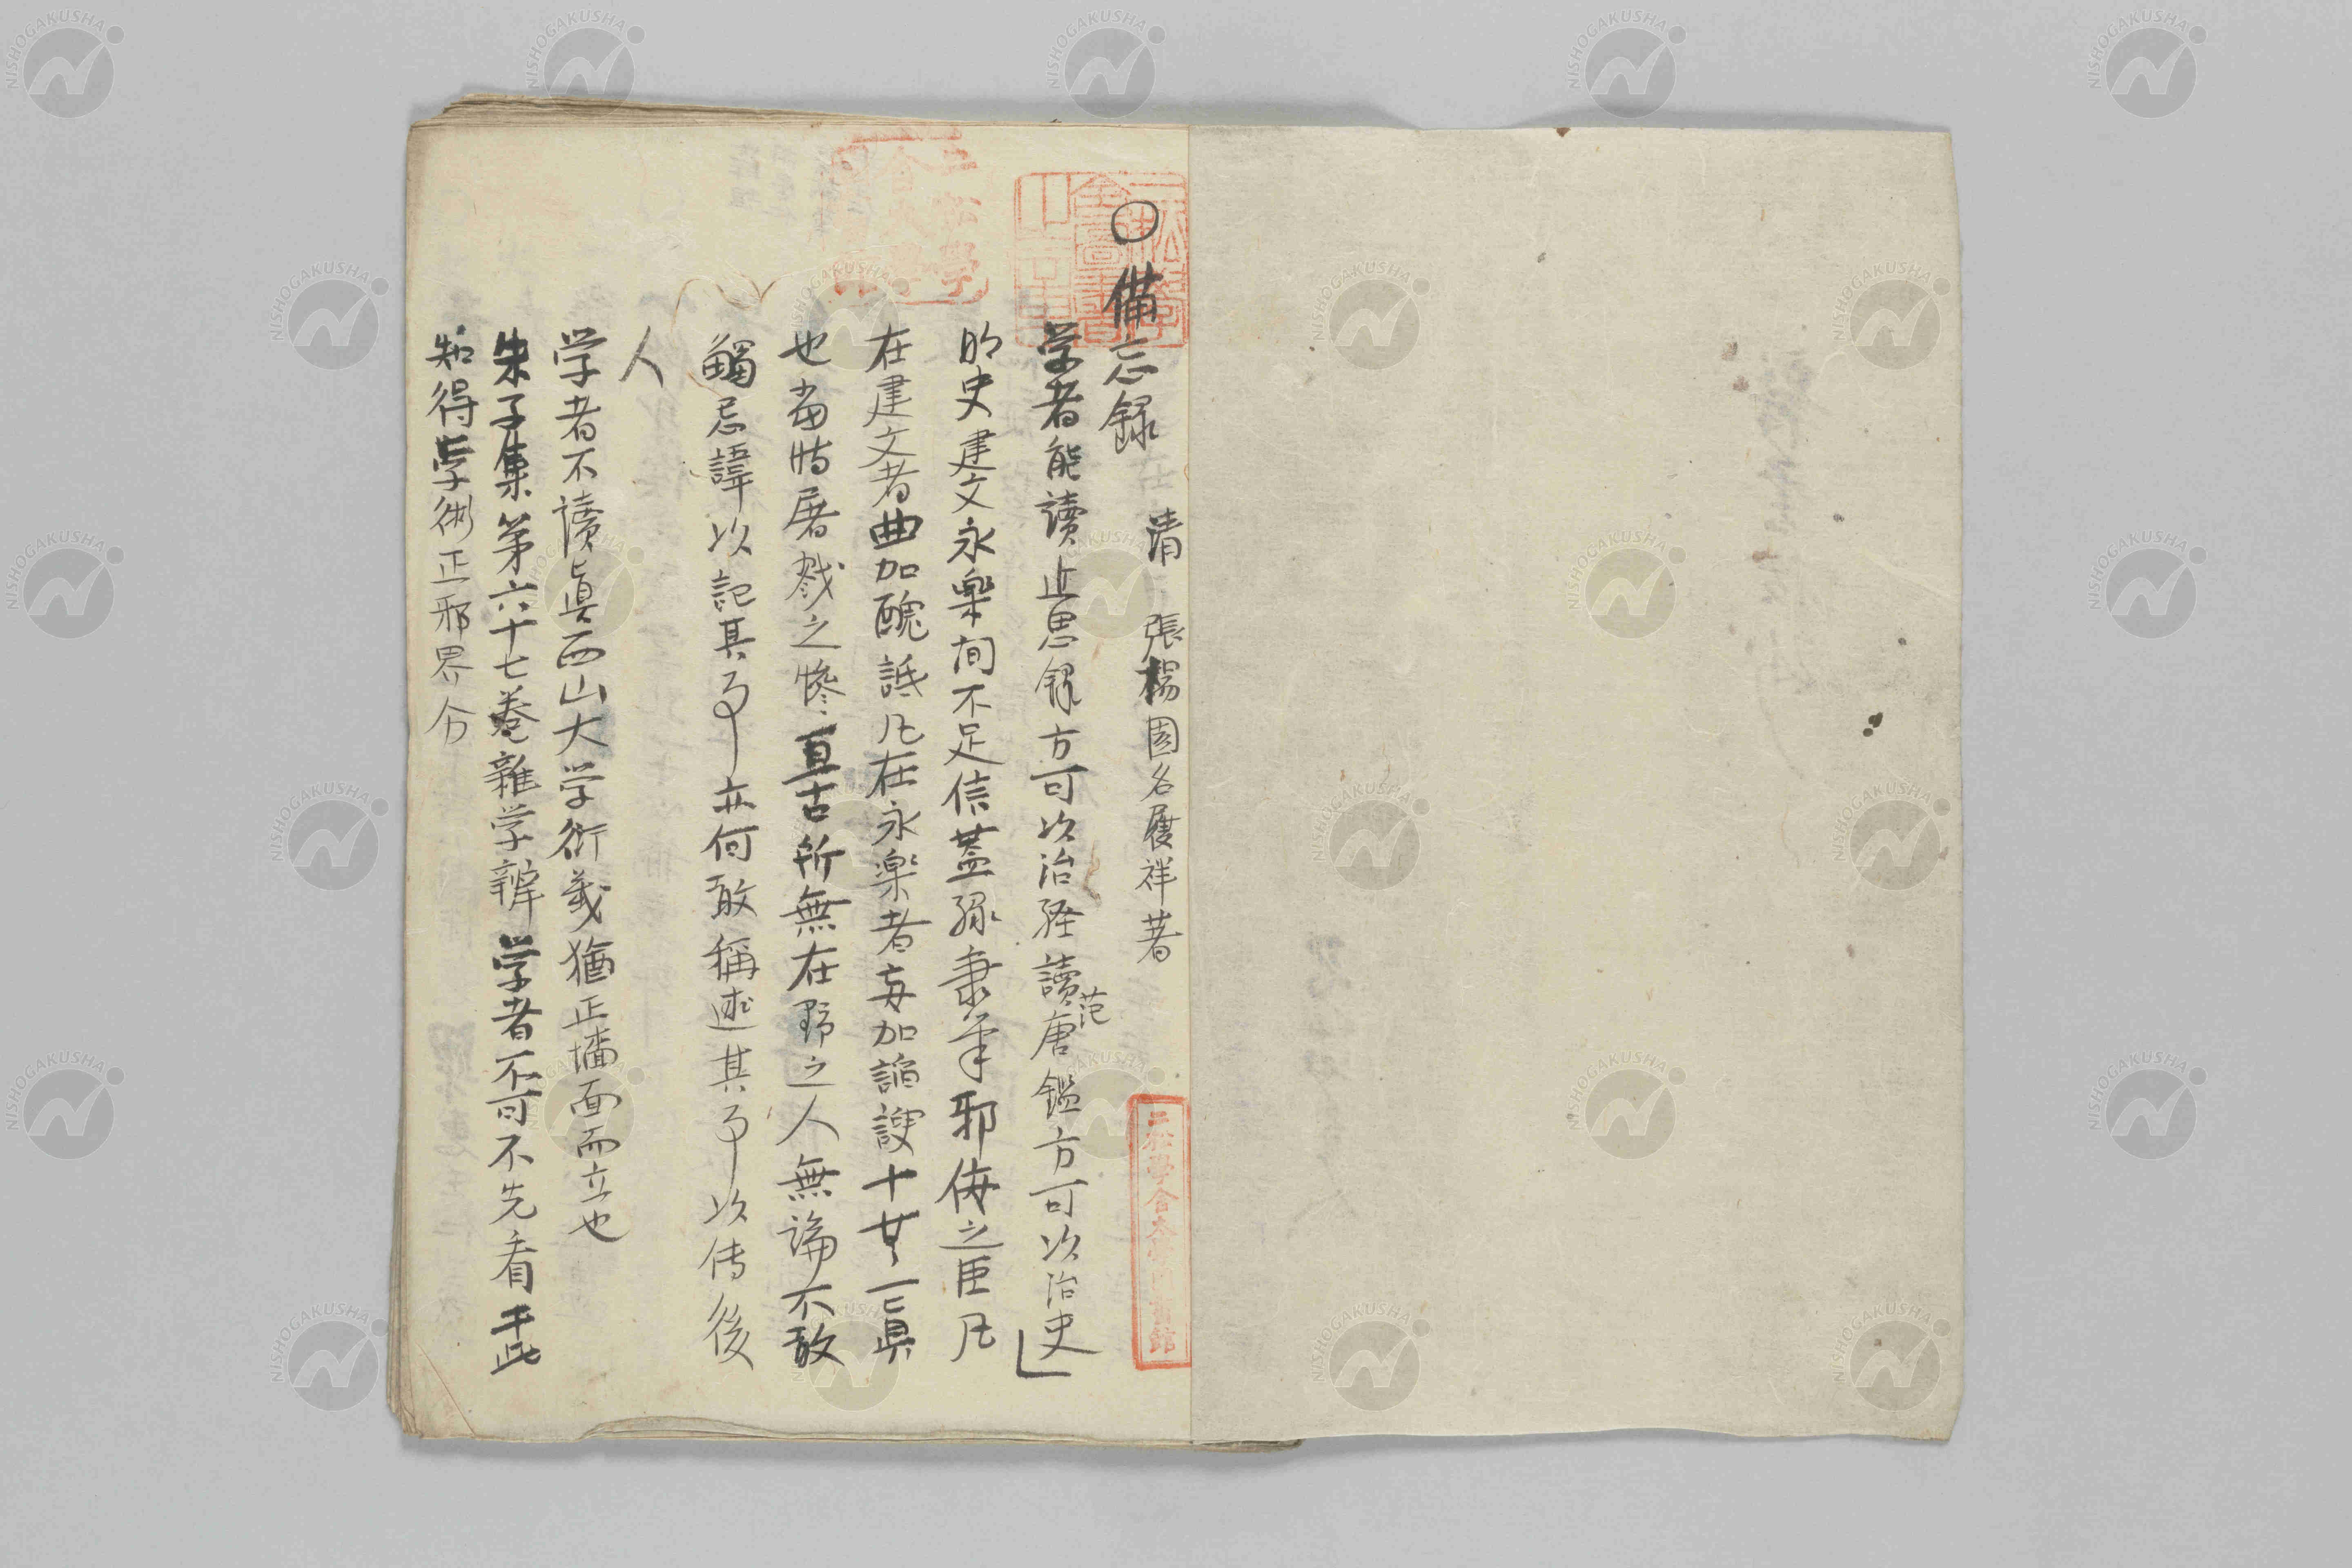 〇備忘録
清 張楊園名履祥著
学者能讀近思録方可以治経讀范唐鑑方可以治史」
明史建文永楽間不足信蓋縁秉筆邪侫之臣凡
在建文者曲加醜詆凡在永楽者妄加諂諛十廿一眞
也當時屠戮之惨亘古所無在野之人無論不敢
觸忌諱以記其事亦何敢稱述其事以传後
人
学者不讀眞西山大学衍義猶正墻面而立也
朱子集第六十七巻雜学辨学者不可不先看于此
知得学術正邪界分
二松學舎大學附属圖書館
NISHOGAKUSHA